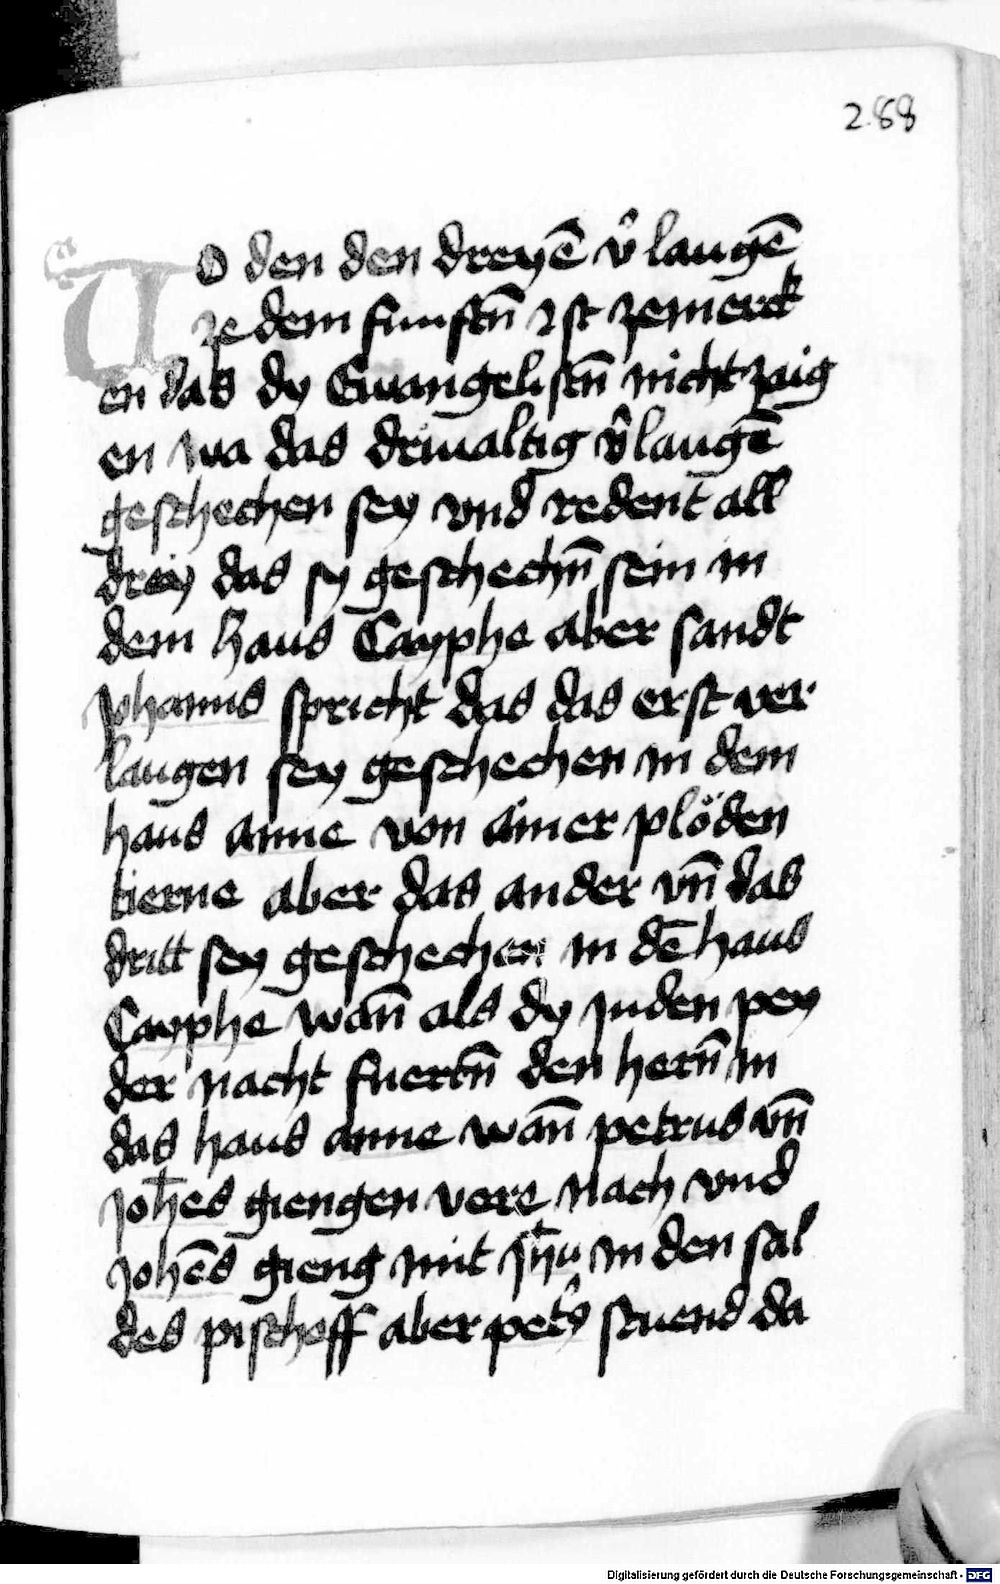 288
Uo den den dreyē v̑laugē
ze dem funftn̄ ist zemerck
en das dy Ewangelistn̄ nicht zaig
en wa das driualtig v̑laugē
geschechen sey vnd redent all
drey das sy geschechn̄ sein in
dem haus Cayphe aber sandt
Johanns spricht das das erst ver
laugen sey geschechen in dem
haus anne von ainer plöden
dierne aber das ander vn̄ das
dritt sey geschechen in dē haus
Cayphe wan̄ als dy Juden pey
der nacht fuertn̄ den hern̄ in
das haus anne wan̄ petrus vn̄
Joh̄es giengen vere nach vnd
Johēs gieng mit Jh̄u in den sal
des pischoff aber pet⁹ stuend da
Digitalisierung gefördert durch die Deutsche Forschungsgemeinschaft - DFG